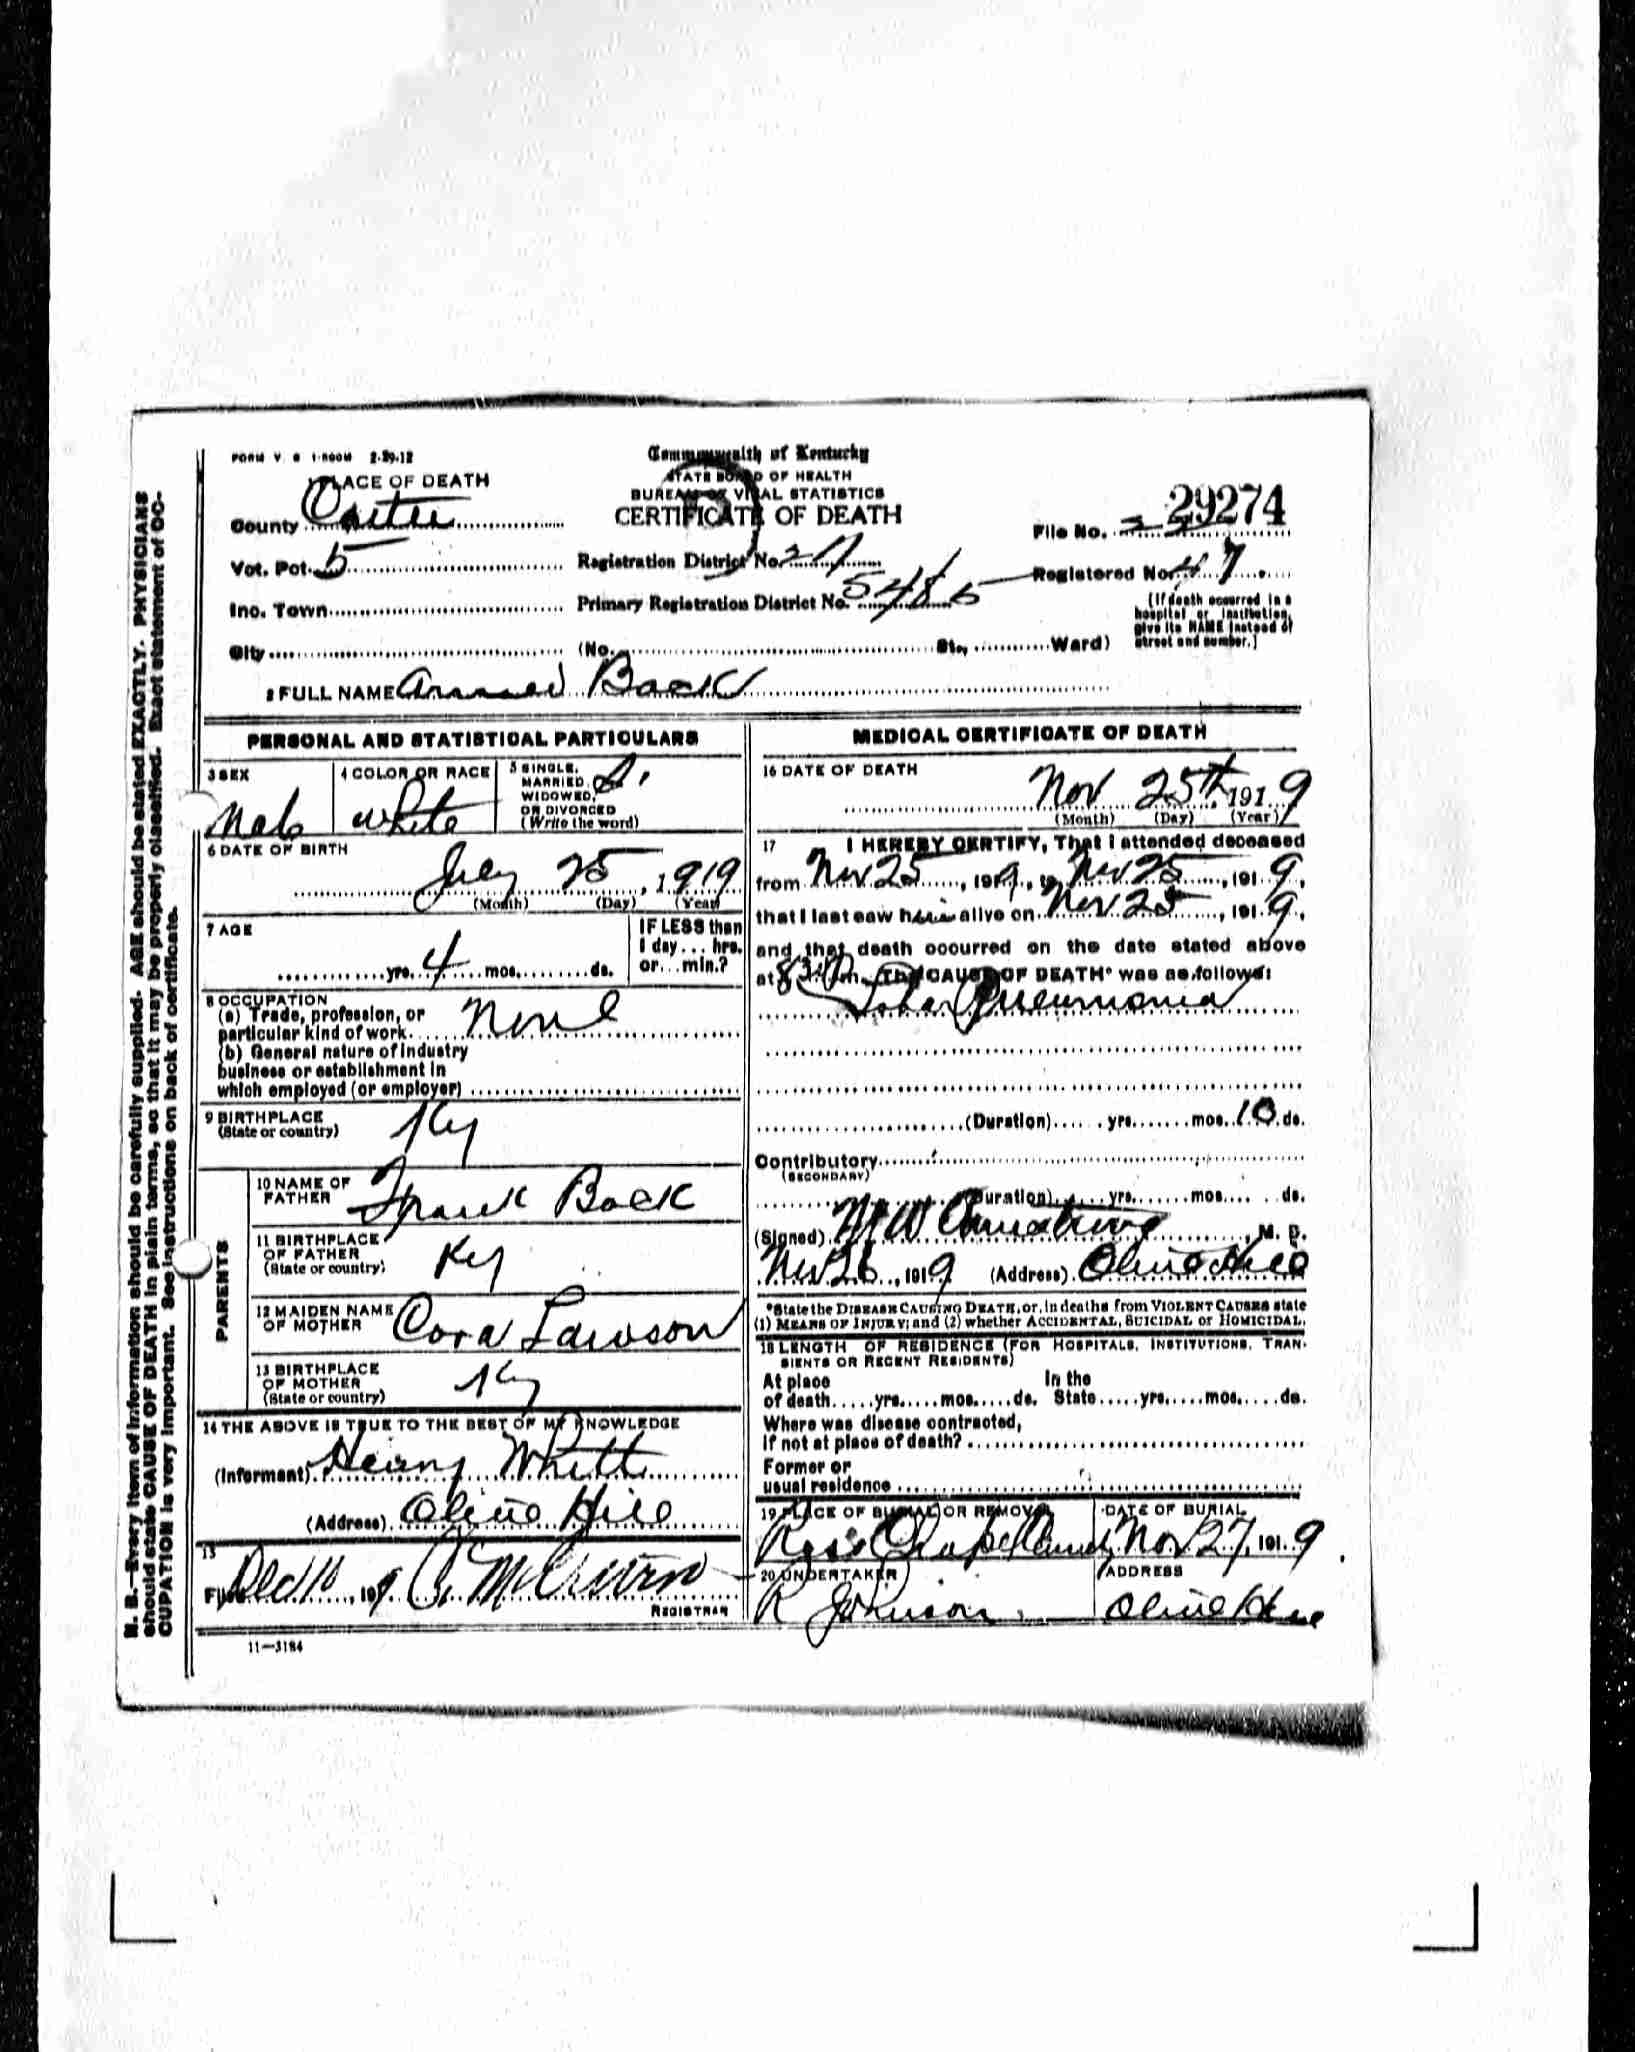 FORM V. S. 1-500M 2-29-12
Commonwealth of Kentucky
STATE BOARD OF HEALTH
BUREAU OF VITAL STATISTICS
CERTIFICATE OF DEATH
1 PLACE OF DEATH
County Carter
Vot. Pct. 5
Inc. Town
City
Registration District No.
Primary Registration District No. 5485
(No. St., Ward)
File No. 29274
Registered No. 47
[If death occurred in a
hospital or institution,
give its NAME instead of
street and number.]
2 FULL NAME Back
PERSONAL AND STATISTICAL PARTICULARS
3 SEX
Male
4 COLOR OR RACE
White
5 SINGLE,
MARRIED,
WIDOWED,
OR DIVORCED
(Write the word)
S.
6 DATE OF BIRTH
July 25, 1919
(Month) (Day) (Year)
7 AGE
yrs. 4 mos. ds.
IF LESS than
1 day... hrs.
or... min.?
8 OCCUPATION
(a) Trade, profession, or
particular kind of work. None
(b) General nature of industry
business or establishment in
which employed (or employer)
9 BIRTHPLACE
(State or country)
Ky
PARENTS
10 NAME OF
FATHER
Frank Back
11 BIRTHPLACE
OF FATHER
(State or country)
Ky
12 MAIDEN NAME
OF MOTHER
Cora Lawson
13 BIRTHPLACE
OF MOTHER
(State or country)
Ky
14 THE ABOVE IS TRUE TO THE BEST OF MY KNOWLEDGE
(Informant) Henry Whitt
(Address) Olive Hill
15
Filed Dec 10, 1919
REGISTRAR
11—3184
MEDICAL CERTIFICATE OF DEATH
16 DATE OF DEATH
Nov 25th, 1919
(Month) (Day) (Year)
17 I HEREBY CERTIFY, That I attended deceased
from Nov 25, 1919, to Nov 25, 1919,
that I last saw him alive on Nov 25, 1919,
and that death occurred on the date stated above
at m. The CAUSE OF DEATH* was as follows:
Lobar Pneumonia
(Duration) yrs. mos. 10 ds.
Contributory
(SECONDARY)
(Duration) yrs. mos. ds.
(Signed) M W Armstrong, M. D.
Nov 26, 1919 (Address) Olive Hill
*State the DISEASE CAUSING DEATH, or, in deaths from VIOLENT CAUSES state
(1) MEANS OF INJURY; and (2) whether ACCIDENTAL, SUICIDAL or HOMICIDAL.
18 LENGTH OF RESIDENCE (FOR HOSPITALS, INSTITUTIONS, TRAN-
SIENTS OR RECENT RESIDENTS)
At place In the
of death yrs. mos. ds. State yrs. mos. ds.
Where was disease contracted,
if not at place of death?
Former or
usual residence
19 PLACE OF BURIAL OR REMOVAL
DATE OF BURIAL
Nov 27, 1919
20 UNDERTAKER
R Johnson
ADDRESS
Olive Hill
N. B.—Every item of information should be carefully supplied. AGE should be stated EXACTLY. PHYSICIANS
should state CAUSE OF DEATH in plain terms, so that it may be properly classified. Exact statement of OC-
CUPATION is very important. See instructions on back of certificate.